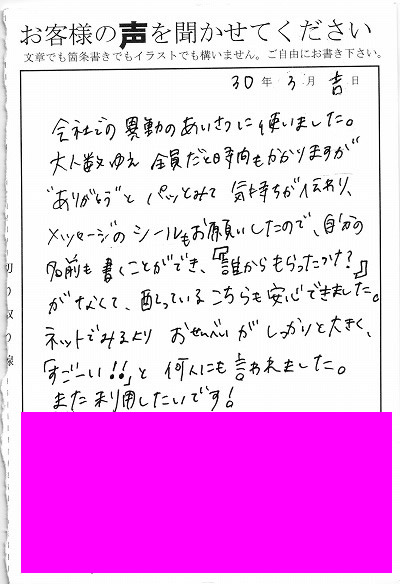 お客様の声を聞かせてください
文章でも箇条書きでもイラストでも構いません。ご自由にお書き下さい。
30年 3月 吉日
会社での異動のあいさつに使いました。
大人数ゆえ 全員だと時間もかかりますが
"ありがとう"と パッとみて 気持ちが伝わり、
メッセージのシールもお願いしたので、自分の
名前も書くことができ、『誰からもらったっけ?』
がなくて、配っているこちらも安心できました。
ネットでみるより おせんべいが しっかりと大きく、
「すごーい!!」と 何人にも言われました。
また利用したいです!
切り取り線